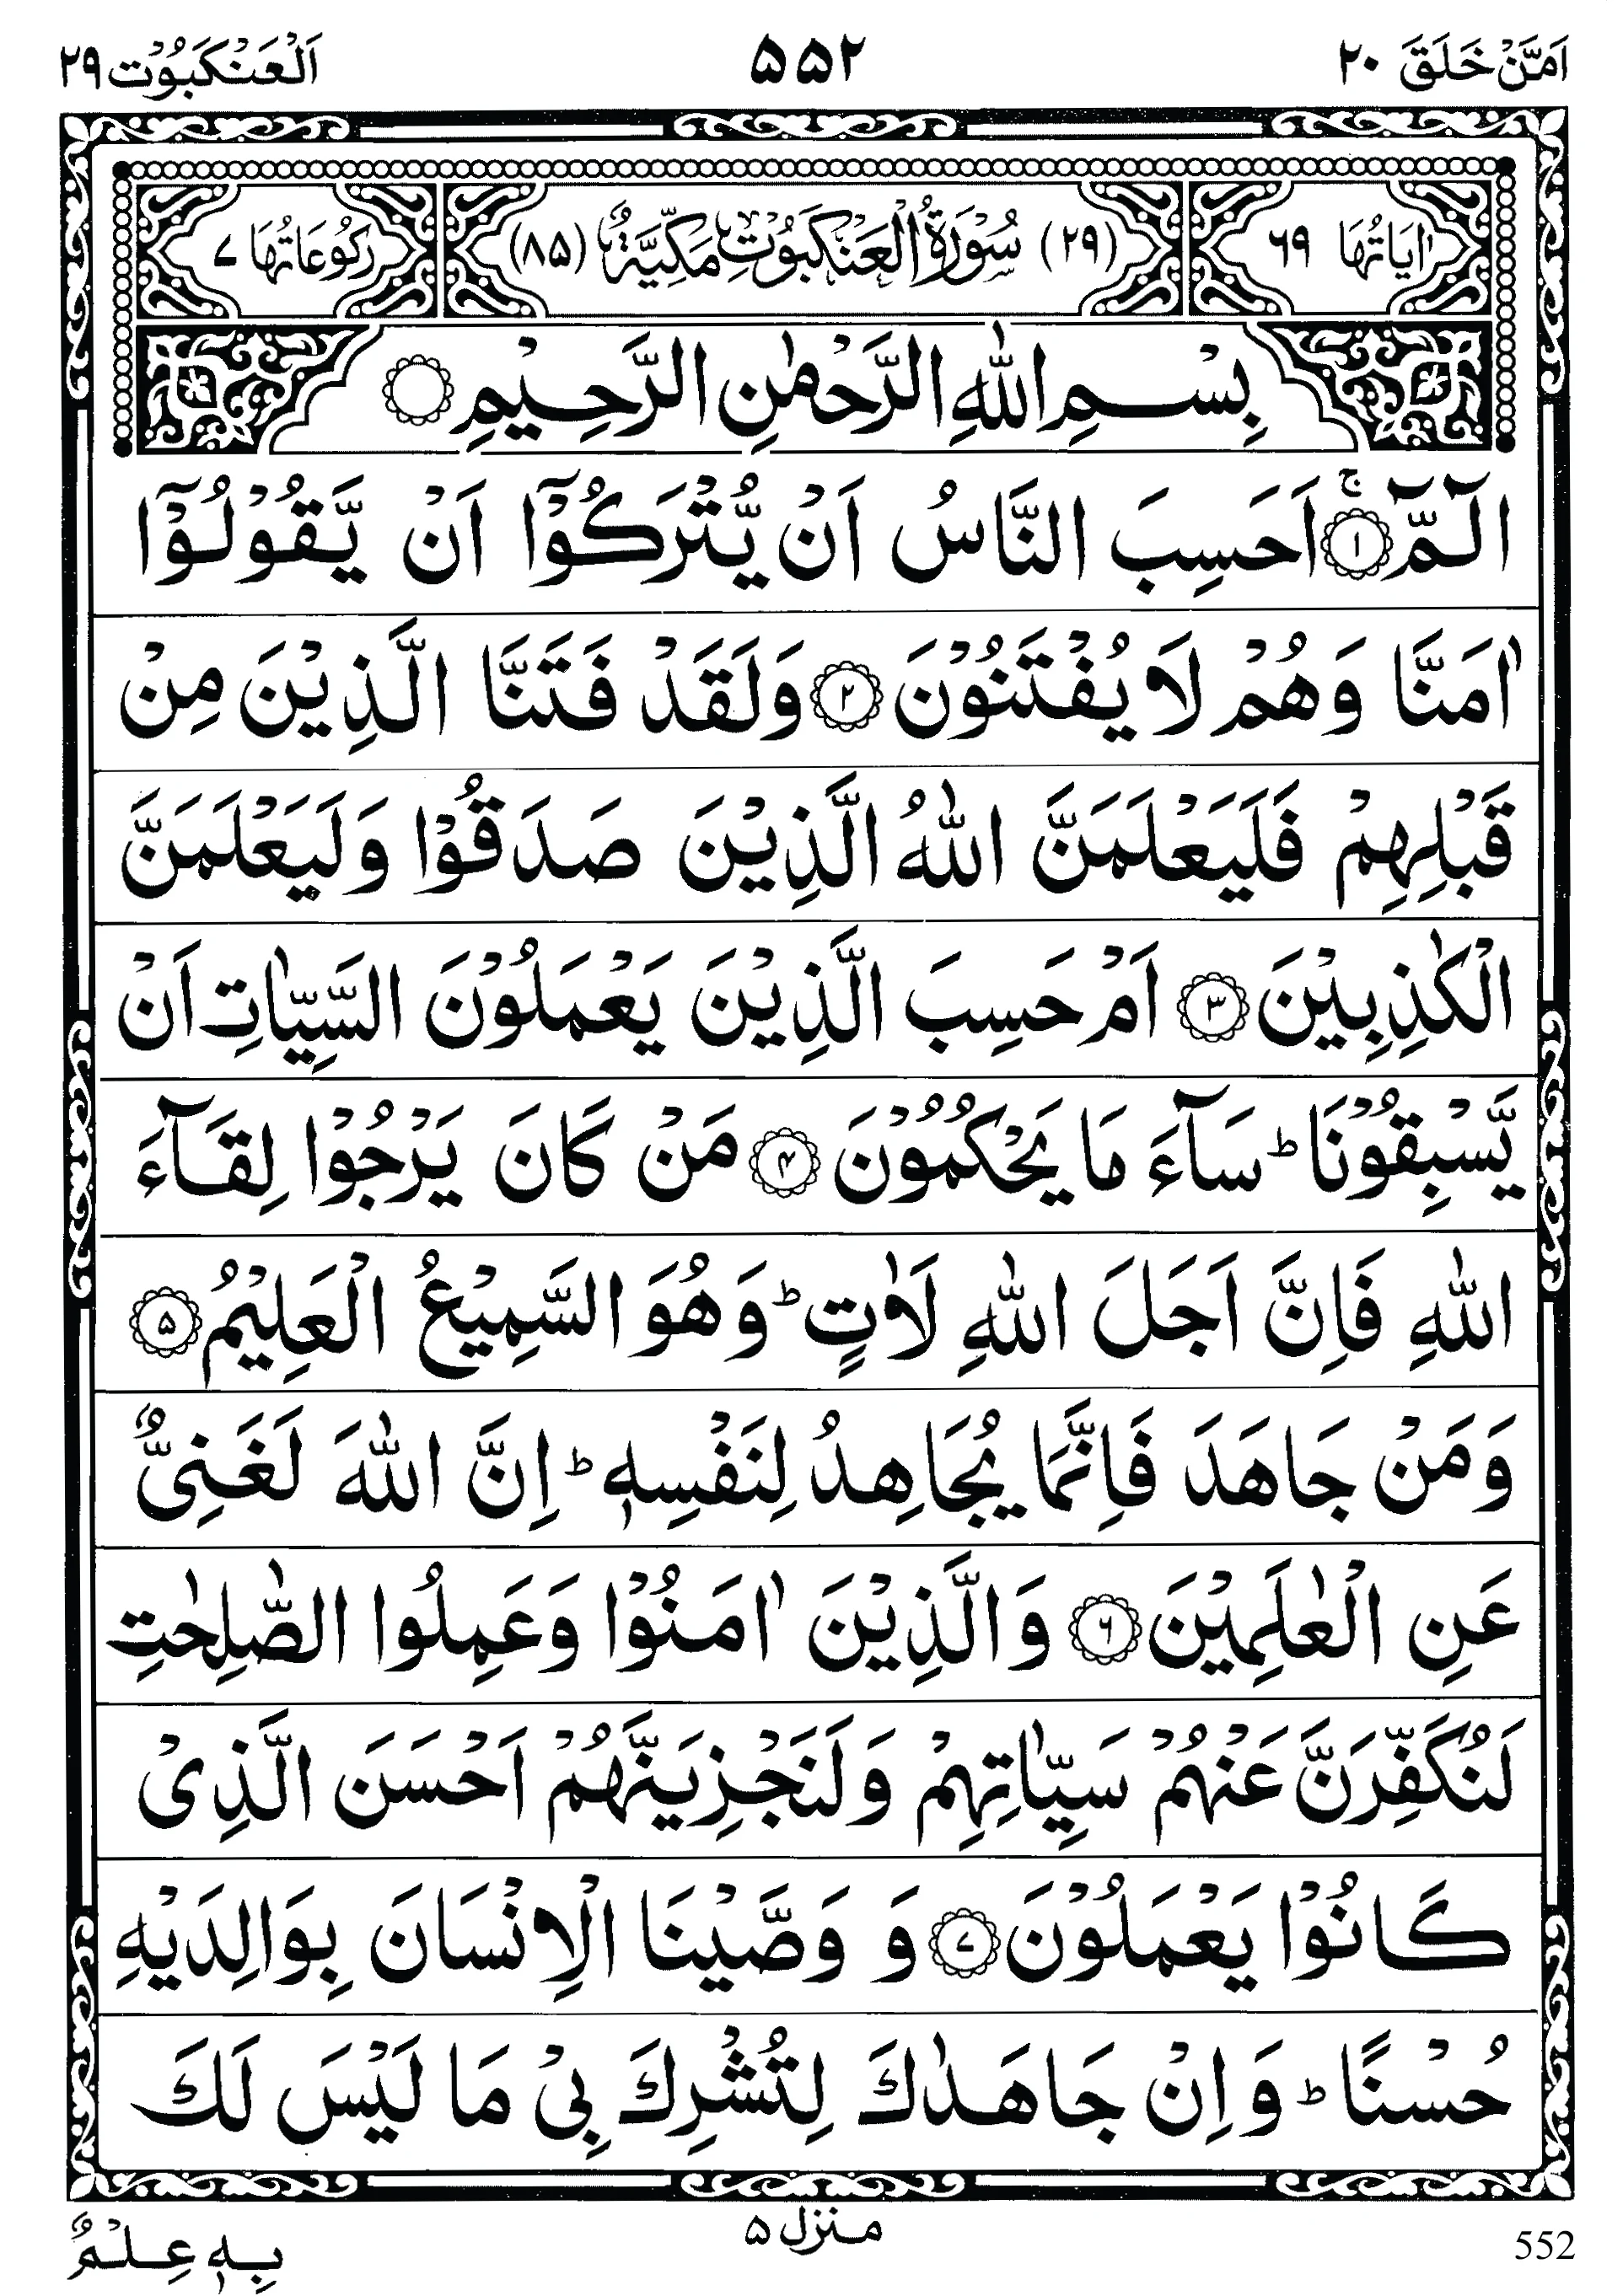 اَمَّنْ خَلَقَ ۲۰ ۵۵۲ اَلْعَنْكَبُوْت ۲۹
اٰيَاتُهَا ۶۹ (۲۹) سُوْرَةُ الْعَنْكَبُوْتِ مَكِّيَّةٌ (۸۵) رُكُوْعَاتُهَا ۷
بِسْمِ اللّٰهِ الرَّحْمٰنِ الرَّحِيْمِ ○
الٓمّٓ ۚ﴿۱﴾ اَحَسِبَ النَّاسُ اَنْ يُّتْرَكُوْۤا اَنْ يَّقُوْلُوْۤا
اٰمَنَّا وَهُمْ لَا يُفْتَنُوْنَ ﴿۲﴾ وَلَقَدْ فَتَنَّا الَّذِيْنَ مِنْ
قَبْلِهِمْ فَلَيَعْلَمَنَّ اللّٰهُ الَّذِيْنَ صَدَقُوْا وَلَيَعْلَمَنَّ
الْكٰذِبِيْنَ ﴿۳﴾ اَمْ حَسِبَ الَّذِيْنَ يَعْمَلُوْنَ السَّيِّاٰتِ اَنْ
يَّسْبِقُوْنَا ؕ سَآءَ مَا يَحْكُمُوْنَ ﴿۴﴾ مَنْ كَانَ يَرْجُوْا لِقَآءَ
اللّٰهِ فَاِنَّ اَجَلَ اللّٰهِ لَاٰتٍ ؕ وَهُوَ السَّمِيْعُ الْعَلِيْمُ ﴿۵﴾
وَمَنْ جَاهَدَ فَاِنَّمَا يُجَاهِدُ لِنَفْسِهٖ ؕ اِنَّ اللّٰهَ لَغَنِىٌّ
عَنِ الْعٰلَمِيْنَ ﴿۶﴾ وَالَّذِيْنَ اٰمَنُوْا وَعَمِلُوا الصّٰلِحٰتِ
لَنُكَفِّرَنَّ عَنْهُمْ سَيِّاٰتِهِمْ وَلَنَجْزِيَنَّهُمْ اَحْسَنَ الَّذِىْ
كَانُوْا يَعْمَلُوْنَ ﴿۷﴾ وَ وَصَّيْنَا الْاِنْسَانَ بِوَالِدَيْهِ
حُسْنًا ؕ وَاِنْ جَاهَدٰكَ لِتُشْرِكَ بِىْ مَا لَيْسَ لَكَ
منزل ۵
بِهٖ عِلْمٌ
552